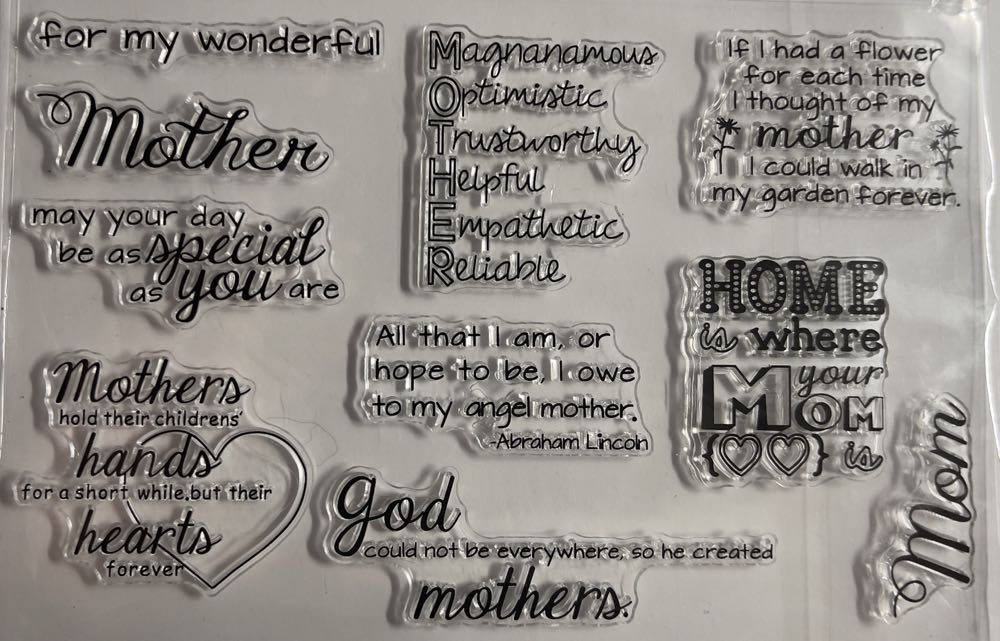 for my wonderful
Mother
may your day
be as special
as you are
Mothers
hold their childrens'
hands
for a short while, but their
hearts
forever
Magnanamous
Optimistic
Trustworthy
Helpful
Empathetic
Reliable
All that I am, or
hope to be, I owe
to my angel mother.
-Abraham Lincoln
god
could not be everywhere, so he created
mothers.
If I had a flower
for each time
I thought of my
mother
I could walk in
my garden forever.
HOME
is where
your
MOM
is
Mom